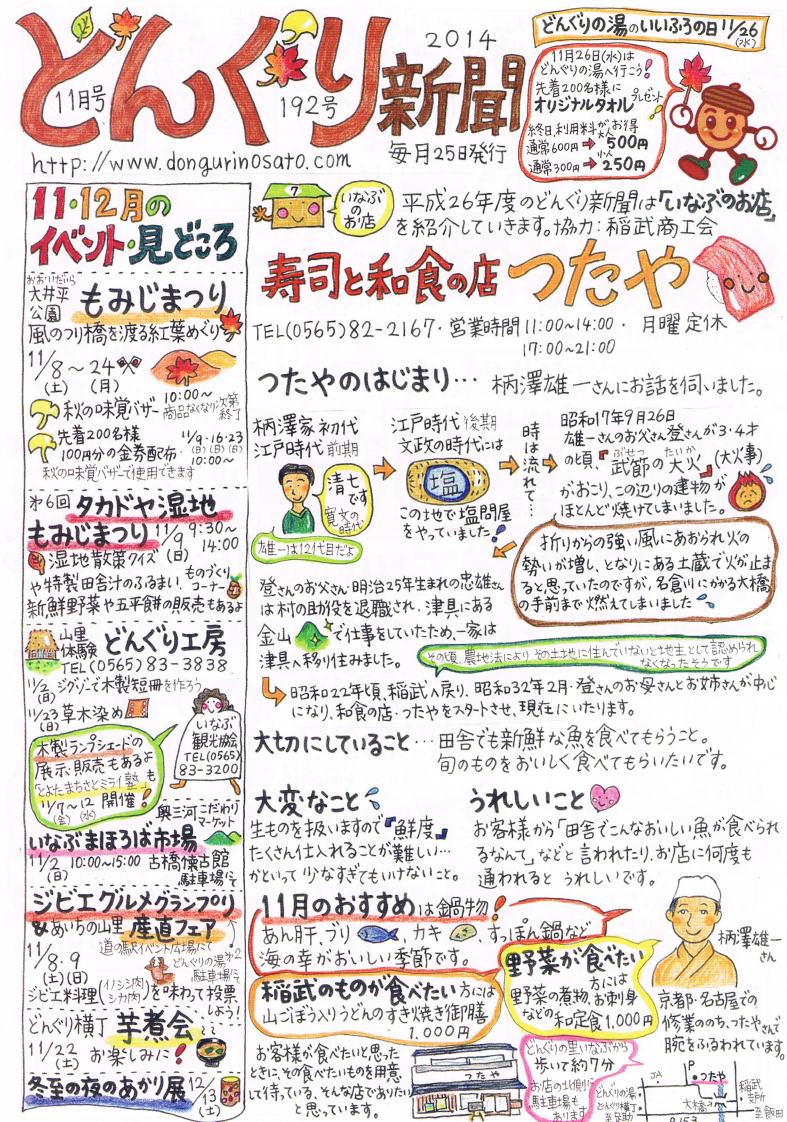 どんぐり新聞
11月号
192号
2014
毎月25日発行
http://www.dongurinosato.com
どんぐりの湯のいいふろの日 11/26(水)
11月26日(水)は
どんぐりの湯へ行こう!
先着200名様に
オリジナルタオル プレゼント
終日、利用料がお得
大人
通常600円➡500円
小人
通常300円➡250円
7
いなぶのお店
平成26年度のどんぐり新聞は「いなぶのお店」
を紹介していきます。協力:稲武商工会
11・12月の
イベント・見どころ
おおいだいら
大井平公園 もみじまつり
風のつり橋を渡る紅葉めぐり
11/8〜24
(土) (月)
秋の味覚バザー 10:00〜 商品なくなり次第終了
先着200名様 11/9・16・23
100円分の金券配布・(日)(日)(日)
10:00〜
秋の味覚バザーで使用できます
第6回 タカドヤ湿地
もみじまつり 11/9(日) 9:30〜14:00
湿地散策クイズ
ものづくりコーナー
や特製田舎汁のふるまい、
新鮮野菜や五平餅の販売もあるよ
山里体験 どんぐり工房
TEL(0565)83-3838
11/2(日) ジグソーで木製短冊を作ろう
11/23(日) 草木染め
いなぶ
観光協会
TEL(0565)
83-3200
木製ランプシェードの
展示・販売もあるよ
「とよたまちさとミライ塾」も
11/7〜12 開催!
(金) (水)
奥三河こだわりマーケット
いなぶまほろば市場
11/2(日) 10:00〜15:00 古橋懐古館
駐車場にて
ジビエグルメグランプリ
&あいちの山里 産直フェア
11/8・9
(土)(日)
道の駅イベント広場にて
どんぐりの湯第2
駐車場にて
ジビエ料理(イノシシ肉 シカ肉)を味わって投票
しよう!
どんぐり横丁 芋煮会
11/22(土) お楽しみに!
冬至の夜のあかり展 12/13(土)
寿司と和食の店 つたや
TEL(0565)82-2167・営業時間 11:00〜14:00・月曜定休
17:00〜21:00
つたやのはじまり… 柄澤雄一さんにお話を伺いました。
柄澤家初代
江戸時代 前期
清七です
寛文の時代
雄一は12代目だよ
江戸時代 後期
文政の時代には
塩
この地で塩問屋
をやっていました!
時は流れて…
昭和17年9月26日
雄一さんのお父さん登さんが3・4才
の頃、『武節の大火』(大火事)
ぶせつ たいか
がおこり、この辺りの建物が
ほとんど焼けてしまいました。
折りからの強い風にあおられ火の
勢いが増し、となりにある土蔵で火が止ま
ると思っていたのですが、名倉川にかかる大橋
の手前まで燃えてしまいました
登さんのお父さん・明治25年生まれの忠雄さん
は村の助役を退職され、津具にある
金山で仕事をしていたため、一家は
津具へ移り住みました。
その頃、農地法により その土地に住んでいないと地主として認められ
なくなったそうです
昭和22年頃、稲武へ戻り、昭和32年2月・登さんのお母さんとお姉さんが中心
になり、和食の店・つたやをスタートさせ、現在にいたります。
大切にしていること… 田舎でも新鮮な魚を食べてもらうこと。
旬のものをおいしく食べてもらいたいです。
大変なこと
生ものを扱いますので『鮮度』
たくさん仕入れることが難しい…
かといって少なすぎてもいけないこと。
うれしいこと
お客様から「田舎でこんなおいしい魚が食べられ
るなんて」などと言われたり、お店に何度も
通われると うれしいです。
11月のおすすめは鍋物!
あん肝、ブリ、カキ、すっぽん鍋など
海の幸がおいしい季節です。
稲武のものが食べたい方には
山ごぼう入りうどんのすき焼き御膳
1,000円
野菜が食べたい
方には
野菜の煮物、お刺身
などの和定食1,000円
柄澤雄一さん
京都・名古屋での
修業ののち、つたやさんで
腕をふるわれています。
お客様が食べたいと思った
ときに、その食べたいものを用意
して待っている、そんな店でありたい
と思っています。
つたや
どんぐりの里いなぶから
歩いて約7分
お店の北側に
駐車場も
あります
JA
P
つたや
稲武支所
どんぐりの湯
どんぐり横丁
至足助
大橋
至飯田
R153